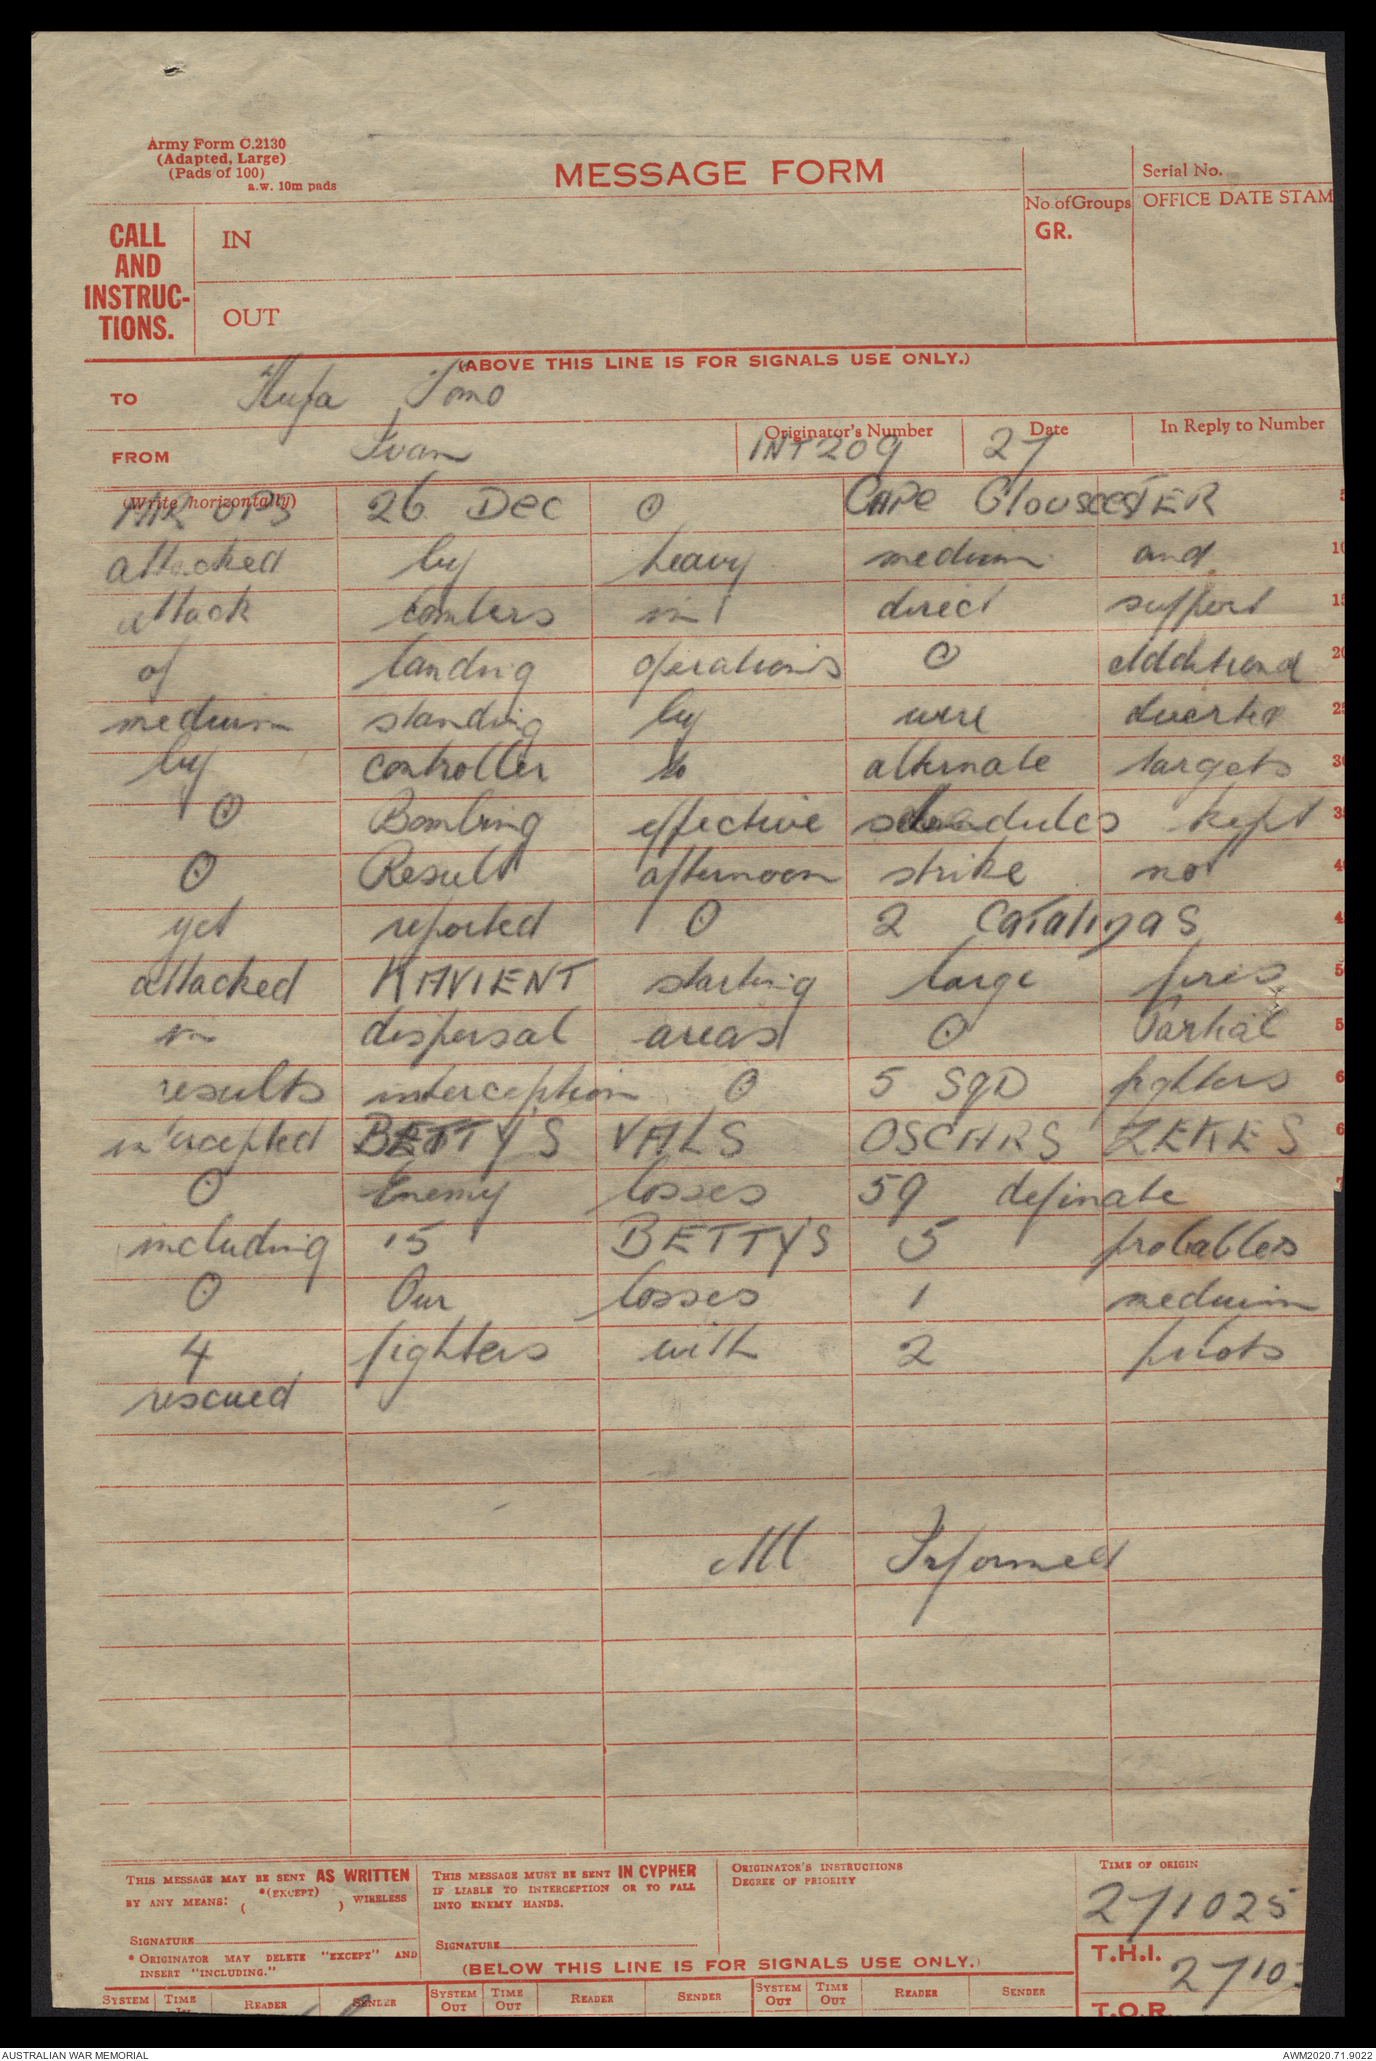 Army Form C.2130
(Adapted, Large)
(Pads of 100)
a.w. 10m pads
MESSAGE FORM
Serial No.
No. of Groups
GR.
OFFICE DATE STAM
CALL
AND
INSTRUC-
TIONS.
IN
OUT
(ABOVE THIS LINE IS FOR SIGNALS USE ONLY.)
TO Hufa Tomo
FROM Ivan
Originator's Number INT 209
Date 27
In Reply to Number
(Write horizontally)
AIR OPS 26 Dec ⊙ CAPE GlousceSTER
attacked by heavy medium and 10
attack bombers in direct support 15
of landing operations ⊙ additional 20
medium standing by were diverted 25
by controller to alternate targets
⊙ Bombing effective schedules kept
⊙ Result afternoon strike not
yet reported ⊙ 2 CATALINAS
attacked KAVIENT starting large fires
in dispersal areas ⊙ Partial
results interception ⊙ 5 SQD fighters
intercepted BETTY'S VALS OSCARS ZEKES
⊙ Enemy losses 59 definate
including 15 BETTY'S 5 probables
⊙ Our losses 1 medium
4 fighters with 2 pilots
rescued
All Informed
THIS MESSAGE MAY BE SENT AS WRITTEN
BY ANY MEANS: *(EXCEPT) ( ) WIRELESS
SIGNATURE
* ORIGINATOR MAY DELETE "EXCEPT" AND
INSERT "INCLUDING."
THIS MESSAGE MUST BE SENT IN CYPHER
IF LIABLE TO INTERCEPTION OR TO FALL
INTO ENEMY HANDS.
SIGNATURE
ORIGINATOR'S INSTRUCTIONS
DEGREE OF PRIORITY
TIME OF ORIGIN
271025
(BELOW THIS LINE IS FOR SIGNALS USE ONLY.)
T.H.I.
2710
T.O.R.
SYSTEM TIME READER SENDER SYSTEM OUT TIME OUT READER SENDER SYSTEM OUT TIME OUT READER SENDER
AUSTRALIAN WAR MEMORIAL
AWM2020.71.9022